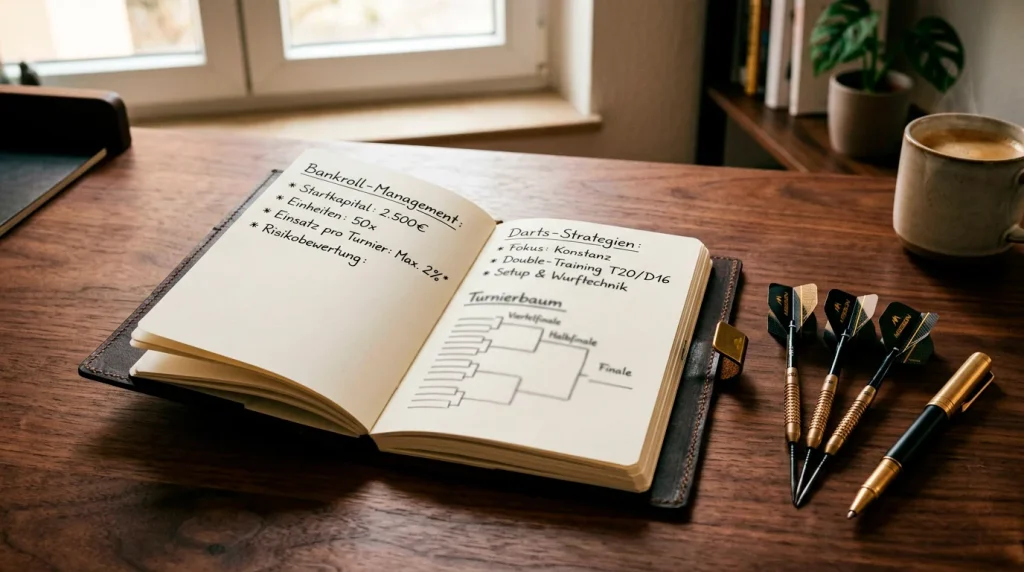 Bankroll-Management:
* Startkapital: 2.500€
* Einheiten: 50x
* Einsatz pro Turnier: Max. 2%*
* Risikobewertung:
Darts-Strategien:
* Fokus: Konstanz
* Double-Training T20/D16
* Setup & Wurftechnik
Turnierbaum
Viertelfinale
Halbfinale
Finale